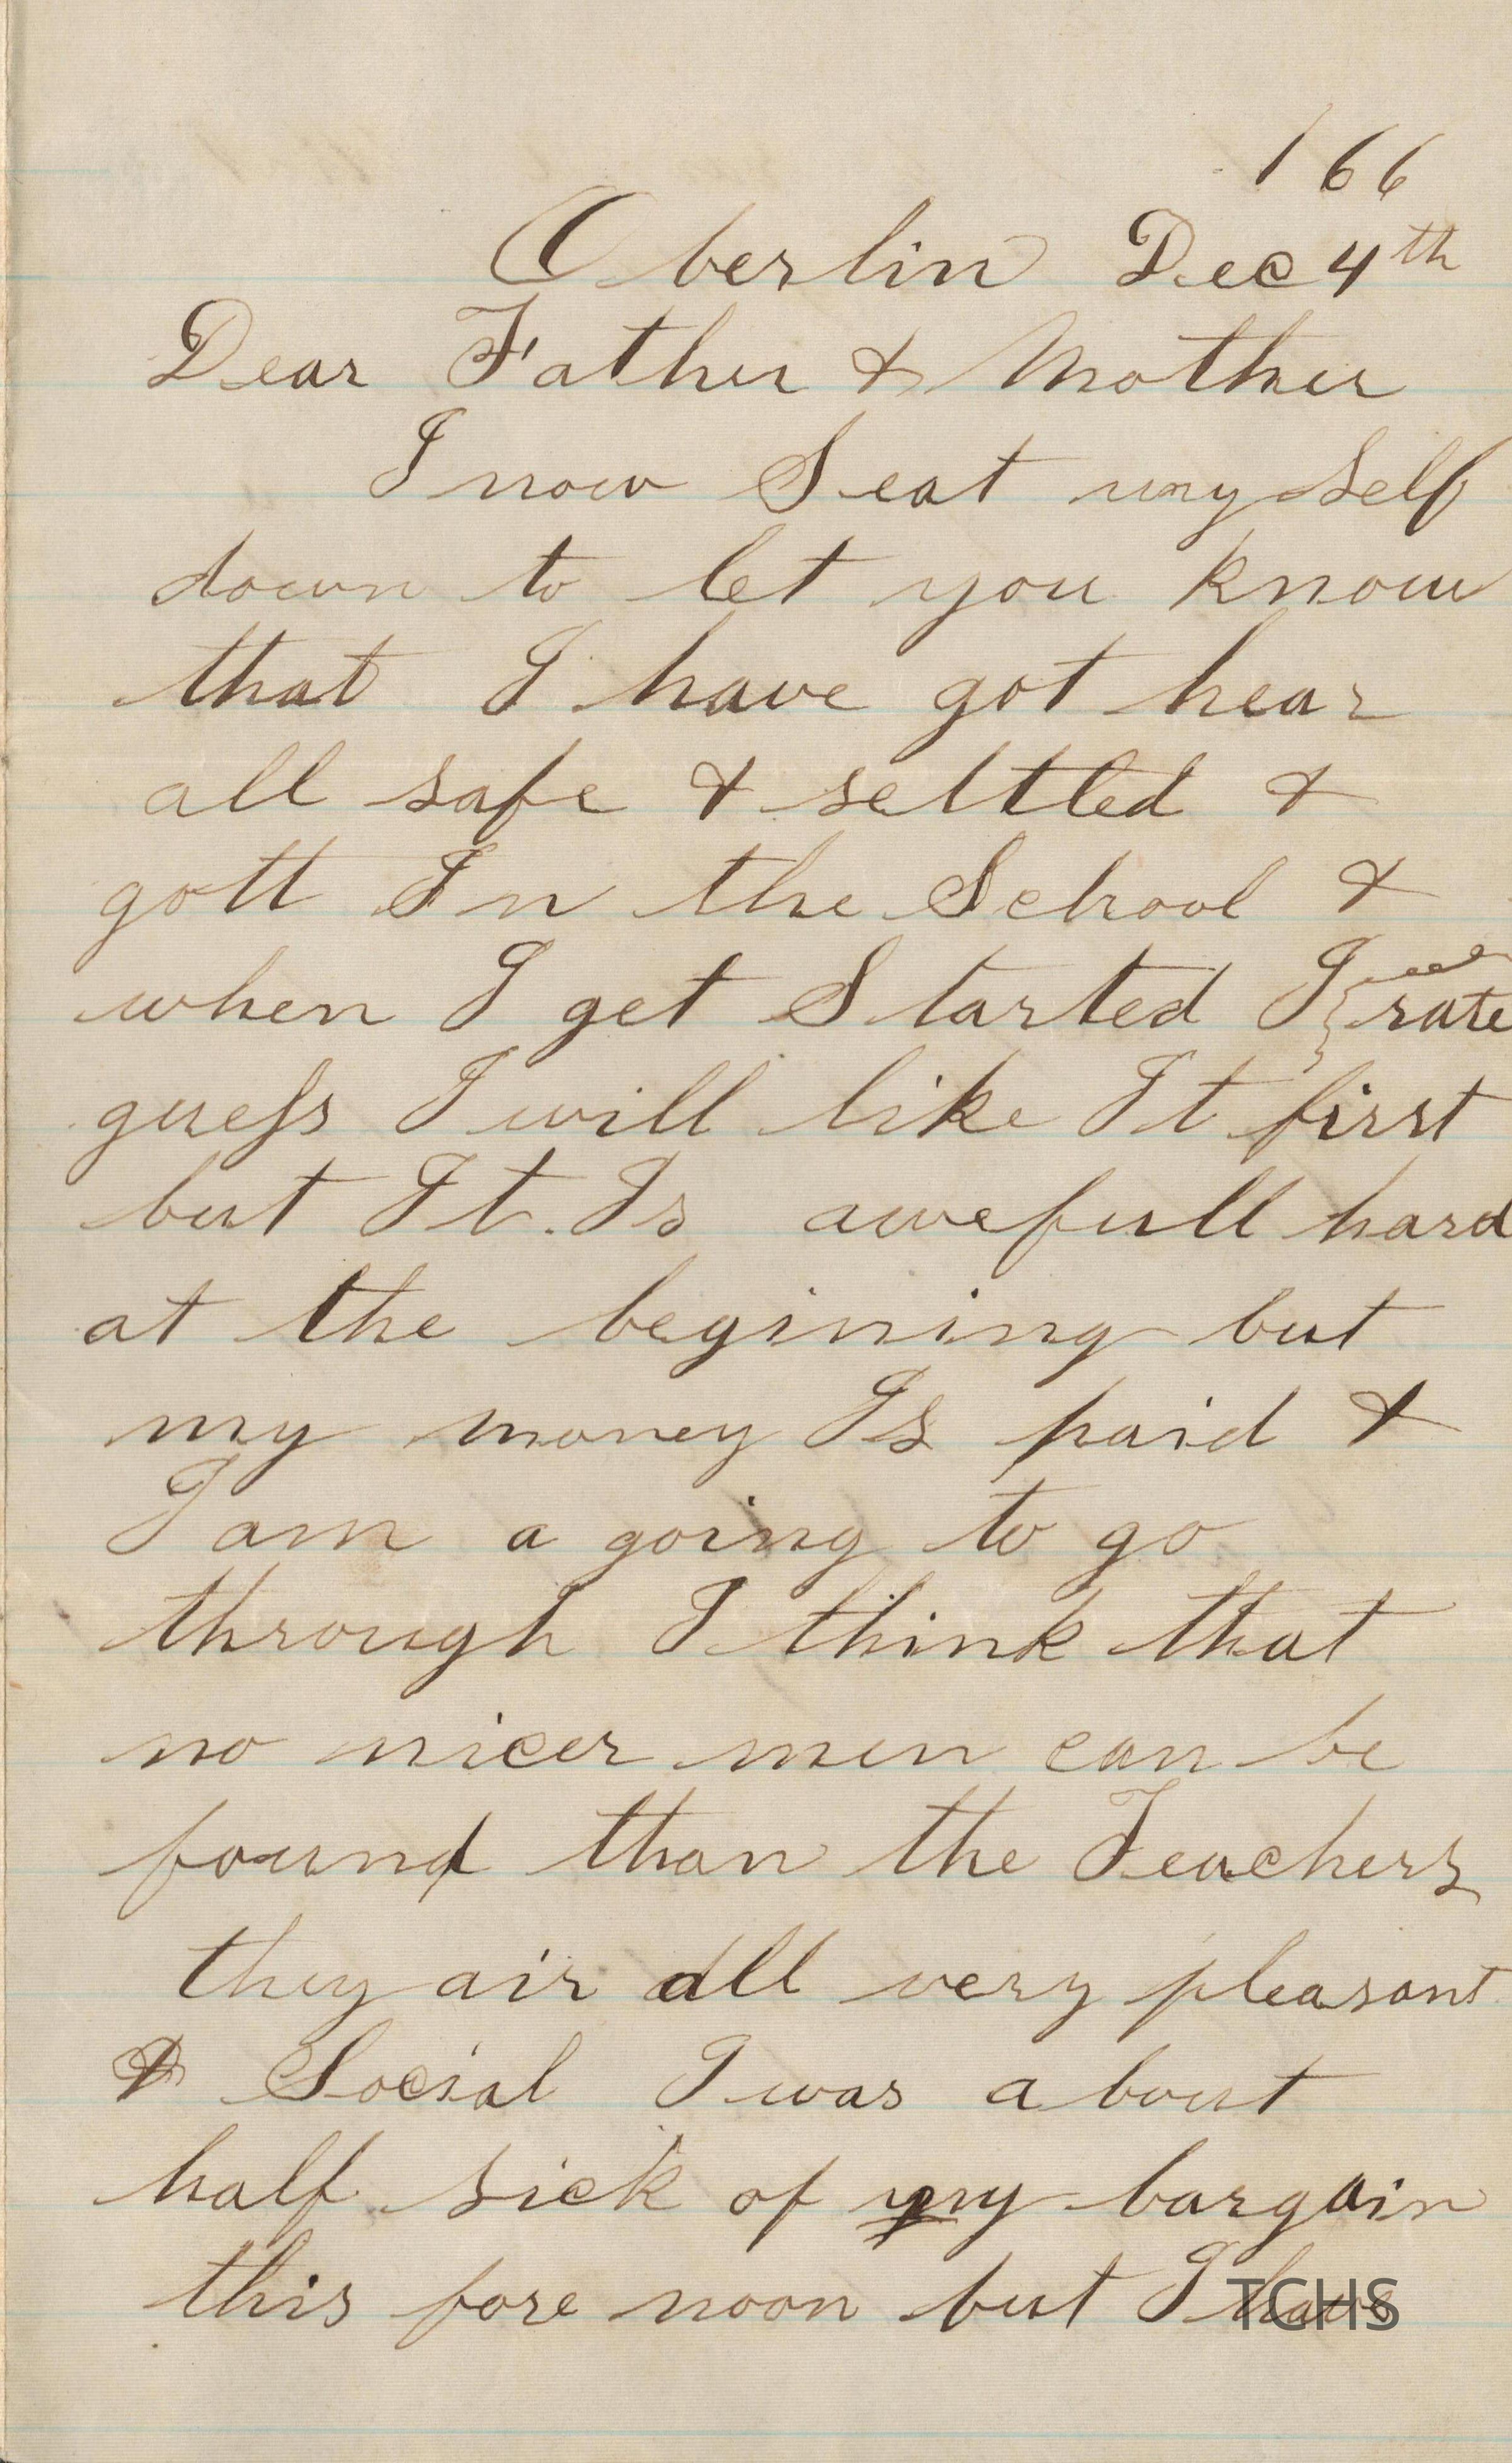 166
Oberlin Dec 4th
Dear Father & Mother
I now Seat my self
down to let you know
that I have got hear
all safe & settled &
gott In the School &
when I get Started I rate
guess I will like It first
but It Is awefull hard
at the begining but
my money Is paid &
I am a going to go
through I think that
no nicer men can be
found than the Teachers
they air all very pleasant
& Social I was about
half sick of my bargain
this fore noon but I have
TCHS